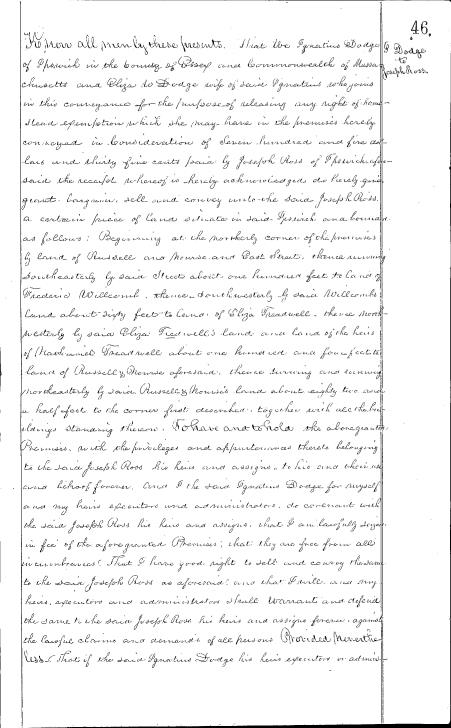 46.
I. Dodge
to
Joseph Ross.
Know all men by these presents. That We Ignatius Dodge
of Ipswich in the County of Essex and Commonwealth of Massa-
chusetts and Eliza W Dodge wife of said Ignatius who joins
in this conveyance for the purpose of releasing any right of home-
stead exemption which she may have in the premises hereby
conveyed in Consideration of Seven hundred and five dol-
lars and thirty five cents paid by Joseph Ross of Ipswich afore-
said the receipt whereof is hereby acknowledged do hereby give
grant. bargain. sell and convey unto the said Joseph Ross.
a certain piece of land situate in said Ipswich and bounded
as follows: Beginning at the northerly corner of the premises
by land of Russell and Mourse and East Street. thence running
Southeasterly by said Street about one hundred feet to land of
Frederic Willcomb. thence Southwesterly by said Willcombs
land about sixty feet to land of Eliza Treadwell. thence North-
westerly by said Eliza Tredwell's land and land of the heirs
of Treadwell about one hundred and four feet to
land of Russell & Mourse aforesaid. thence turning and running
northeasterly by said Russell & Mourse's land about eighty two and
a half feet to the corner first described. together with all the bui-
ldings standing thereon. To have and to hold the above granted
Premises. with the privileges and appurtenances thereto belonging
to the said Joseph Ross his heirs and assigns. to his and their use
and behoof forever. And I the said Ignatius Dodge for myself
and my heirs executors and administrators. do covenant with
the said Joseph Ross his heirs and assigns. that I am lawfully seized
in fee of the aforegranted Premises; that they are free from all
incumbrances: That I have good right to sell and convey the same
to the said Joseph Ross as aforesaid: and that I will and my
heirs. executors and administrators shall Warrant and defend
the same to the said Joseph Ross his heirs and assigns forever. against
the lawful claims and demands of all persons Provided Neverthe-
less. That if the said Ignatius Dodge his heirs executors or adminis-